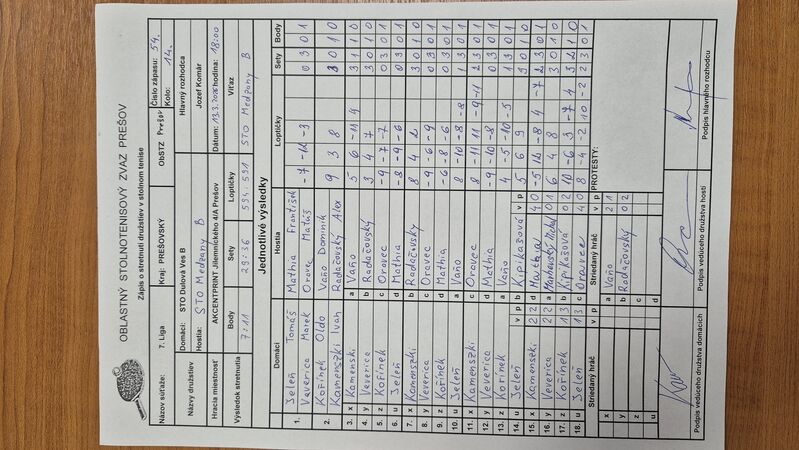 OBLASTNÝ STOLNOTENISOVÝ ZVAZ PREŠOV
Zápis o stretnutí družstiev v stolnom tenise
Názov súťaže: 7. Liga Kraj: PREŠOVSKÝ ObSTZ Prešov Číslo zápasu: 54.
Kolo: 14.
Názvy družstiev Domáci: STO Dulová Ves B Hlavný rozhodca
Hostia: STO Medzany B Jozef Komár
Hracia miestnosť AKCENTPRINT Jilemnického 4/A Prešov Dátum: 13.3.2026 hodina: 18:00
Výsledok stretnutia Body Sety Loptičky Víťaz
7:11 29:36 594:591 STO Medzany B
Jednotlivé výsledky
Domáci Hostia Loptičky Sety Body
1. Jeleň Tomáš Mathia František
Veverica Marek Orovec Matúš -7 -12 -3 0 3 0 1
2. Kořínek Oldo Vaňo Dominik
Kamenszki Ivan Radačovský Alex 9 3 8 3 0 1 0
3. x Kamenski a Vaňo 5 6 -11 4 3 1 1 0
4. y Veverica b Radačovský 3 4 7 3 0 1 0
5. z Kořínek c Orovec -9 -7 -7 0 3 0 1
6. u Jeleň d Mathia -8 -9 -6 0 3 0 1
7. x Kamenski b Radačovsky 8 4 2 3 0 1 0
8. y Veverica c Orovec -9 -6 -9 0 3 0 1
9. z Kořínek d Mathia -6 -8 -6 0 3 0 1
10. u Jeleň a Vaňo 8 -10 -8 -8 1 3 0 1
11. x Kamenszki c Orovec 8 -11 11 -9 -11 2 3 0 1
12. y Veverica d Mathia -9 -10 -8 0 3 0 1
13. z Kořínek a Vaňo 4 -5 -10 -5 1 3 0 1
14. u Jeleň v p b Kipikašová v p 5 6 9 3 0 1 0
15. x Kamenszki 2 2 d Mathia 4 0
16. y Veverica 2 2 a 0 1 6 4 8 3 0 1 0
17. z Kořínek 1 3 b Kipikašová 0 2 10 -6 3 -7 4 3 2 1 0
18. u Jeleň 1 3 c Oravec 4 0 8 -4 -2 10 -2 2 3 0 1
Striedaný hráč v p Striedaný hráč v p PROTESTY:
x a Vaňo 2 1
y b Radačovský 0 2
z c
u d
Podpis vedúceho družstva domácich Podpis vedúceho družstva hostí Podpis hlavného rozhodcu